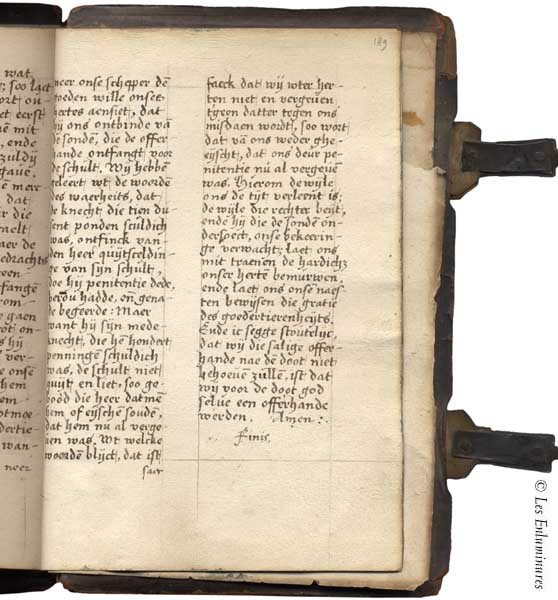 189
wat
soo laet
ende
gaue.
dat
neer
neer onse schepper dē
goeden wille onses
hertes aensiet, dat
hij ons ontbinde vā
de sondē, die de offer
hande ontfangt voor
de schult. Wij hebbē
geleert wt de woordē
des waerheits, dat
de knecht die tien du
sent ponden sculdich
was, ontfinck van
den heer quijtsceldin
ge van sijn schult,
doe hij penitentie dede,
berou hadde, en gena
de begeerde: Maer
want hij sijn mede
knecht, die hē hondert
penningē schuldich
was, de schult niet
quijt en liet, soo ge
boōd die heer datmē
hem of eijschē soude,
dat hem nu al verge
uen was. Wt welche
woordē blijct, dat ist
saec
faeck dat wij wter her-
ten niet en vergeuen
tgeen datter tegen ons
misdaen wordt, soo wort
dat vā ons weder ghe-
eijscht, dat ons deur pe-
nitentie nu al vergeuē
was. Hierom dewijle
ons de tijt verleent is;
de wijle die rechter beijt,
ende hij die de sonde on-
dersoect, onse bekeerin-
ge verwacht; laet ons
mit traenen de hardich3
onser herte bemurwen
ende laet ons onse naes-
ten bewijsen die gratie
des goedertierenheijts.
Ende ic segge stoutelijc,
dat wij die salige offer-
hande nae de doot niet
behoeuē zullē, ist dat
wij voor de doot god
selue een offerhande
werden. Amen:.
Finis.
© Les Enluminures